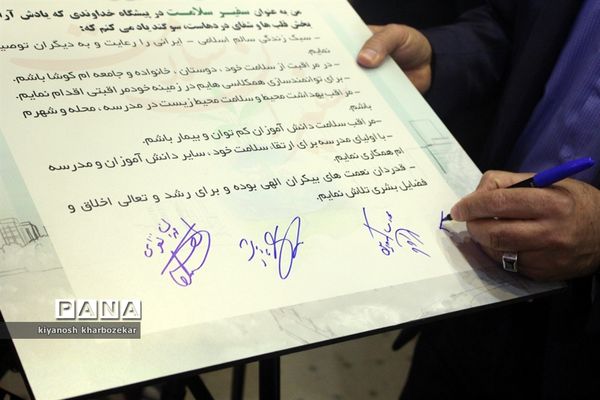 من به عنوان سفیر سلامت در پیشگاه خداوندی که یادش آرا
بخش قلب ها و شفای دردهاست، سوگند یاد می کنم که:
- سبک زندگی سالم اسلامی - ایرانی را رعایت و به دیگران توصیه
نمایم.
- در مراقبت از سلامت خود، دوستان، خانواده و جامعه ام کوشا باشم.
- برای توانمندسازی همکلاسی هایم در زمینه خودمراقبتی اقدام نمایم.
- مراقب بهداشت محیط و سلامت محیط زیست در مدرسه، محله و شهرم
باشم.
- مراقب سلامت دانش آموزان کم توان و بیمار باشم.
- با اولیای مدرسه برای ارتقاء سلامت خود، سایر دانش آموزان و مدرسه
ام همکاری نمایم.
- قدردان نعمت های بیکران الهی بوده و برای رشد و تعالی اخلاق و
فضایل بشری تلاش نمایم.
PANA
kiyanosh kharbozekar